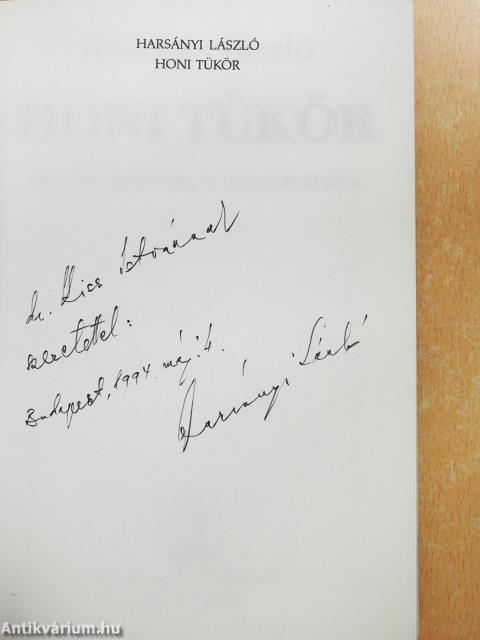 HARSÁNYI LÁSZLÓ
HONI TÜKÖR
HONI TÜKÖR
dr. Kics Istvánnak
szeretettel:
Budapest, 1994. máj. 4.
Harsányi László
Antikvárium.hu